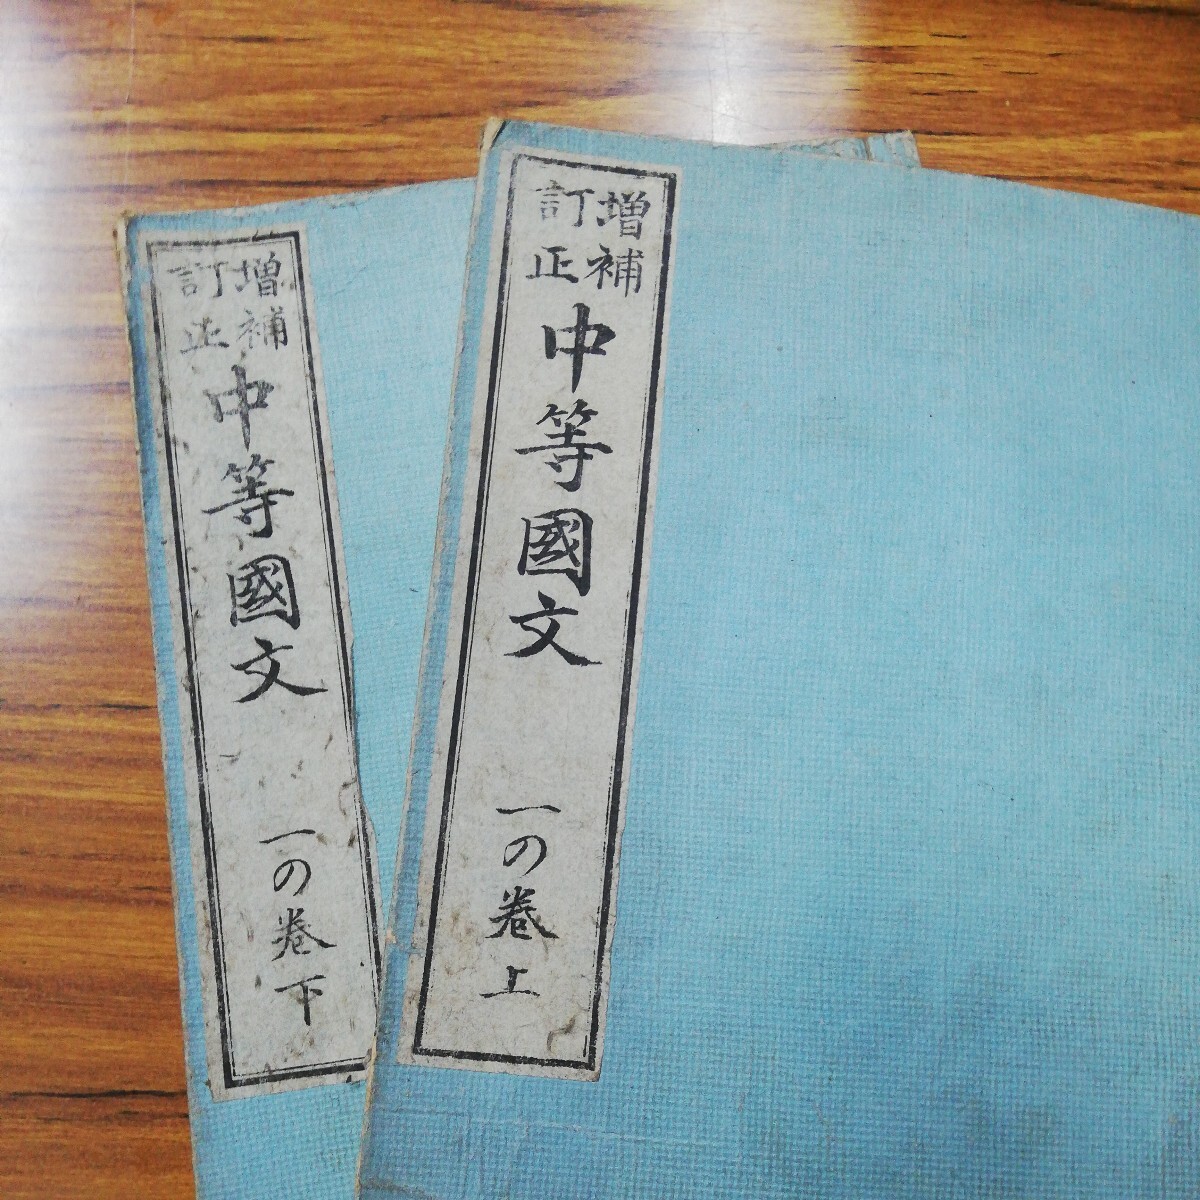 増補
訂正
中等國文
一の卷上
増補
訂正
中等國文
一の卷下